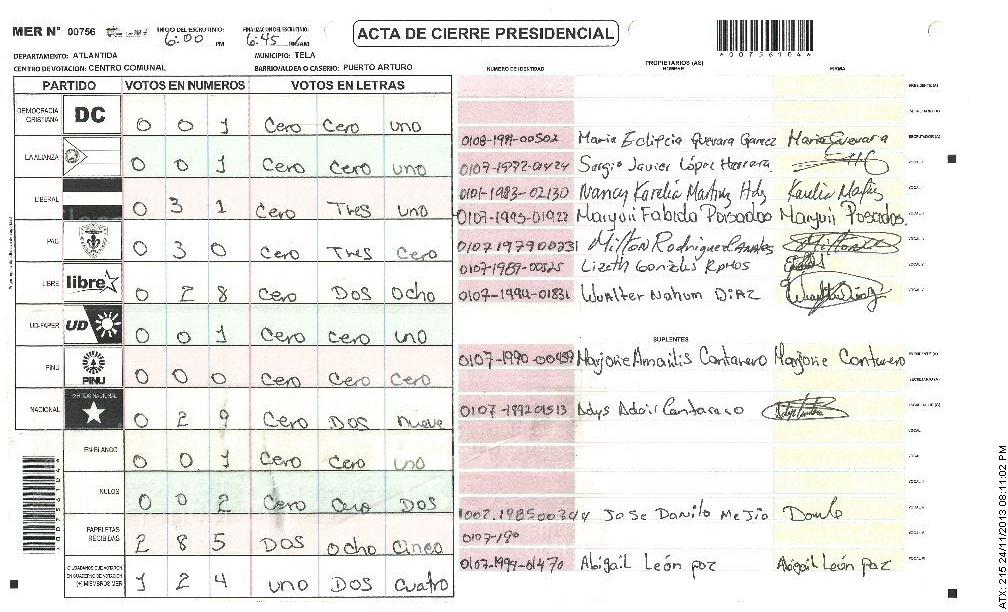 MER N° 00756 INICIO DEL ESCRUTINIO: 6:00 PM FINALIZACION DEL ESCRUTINIO: 6:45 PM/AM
ACTA DE CIERRE PRESIDENCIAL
DEPARTAMENTO: ATLANTIDA MUNICIPIO: TELA
CENTRO DE VOTACION: CENTRO COMUNAL BARRIO/ALDEA O CASERIO: PUERTO ARTURO
PARTIDO VOTOS EN NUMEROS VOTOS EN LETRAS
DEMOCRACIA CRISTIANA DC 0 0 1 Cero Cero uno
LA ALIANZA 0 0 1 Cero Cero uno
LIBERAL 0 3 1 Cero Tres uno
PAC 0 3 0 Cero Tres Cero
LIBRE libre 0 2 8 Cero Dos Ocho
UD-FAPER UD 0 0 1 Cero Cero uno
PINU PINU 0 0 0 Cero Cero Cero
NACIONAL PARTIDO NACIONAL 0 2 9 Cero Dos nueve
EN BLANCO 0 0 1 Cero Cero uno
NULOS 0 0 2 Cero Cero Dos
PAPELETAS RECIBIDAS 2 8 5 Dos ocho cinco
CIUDADANOS QUE VOTARON
EN CUADERNO DE VOTACION
(+) MIEMBROS MER 1 2 4 uno Dos cuatro
PROPIETARIOS (AS)
NUMERO DE IDENTIDAD NOMBRE FIRMA
Maria Guevara
0107-1972-01424 Sergio Javier López Herrara
0101-1983-02130 Nancy Karelia Martinez Hdz
0107-1995-01922
0107197900731 Milton Rodriguez
0107-1989-00525 Lizeth Gonzáles Ramos
0107-1994-01831 Wualter Nahum DIAZ
SUPLENTES
0107-1990-00459 Marjorie Amarilis Cantarero Marjorie Cantarero
0107-199201513 Adys Adail Cantarero
Jose Danilo Mejia Danilo
0107-19
0107-1994-01470 Abigail León paz Abigail León paz
ATX 215 24/11/2013 08:11:02 PM